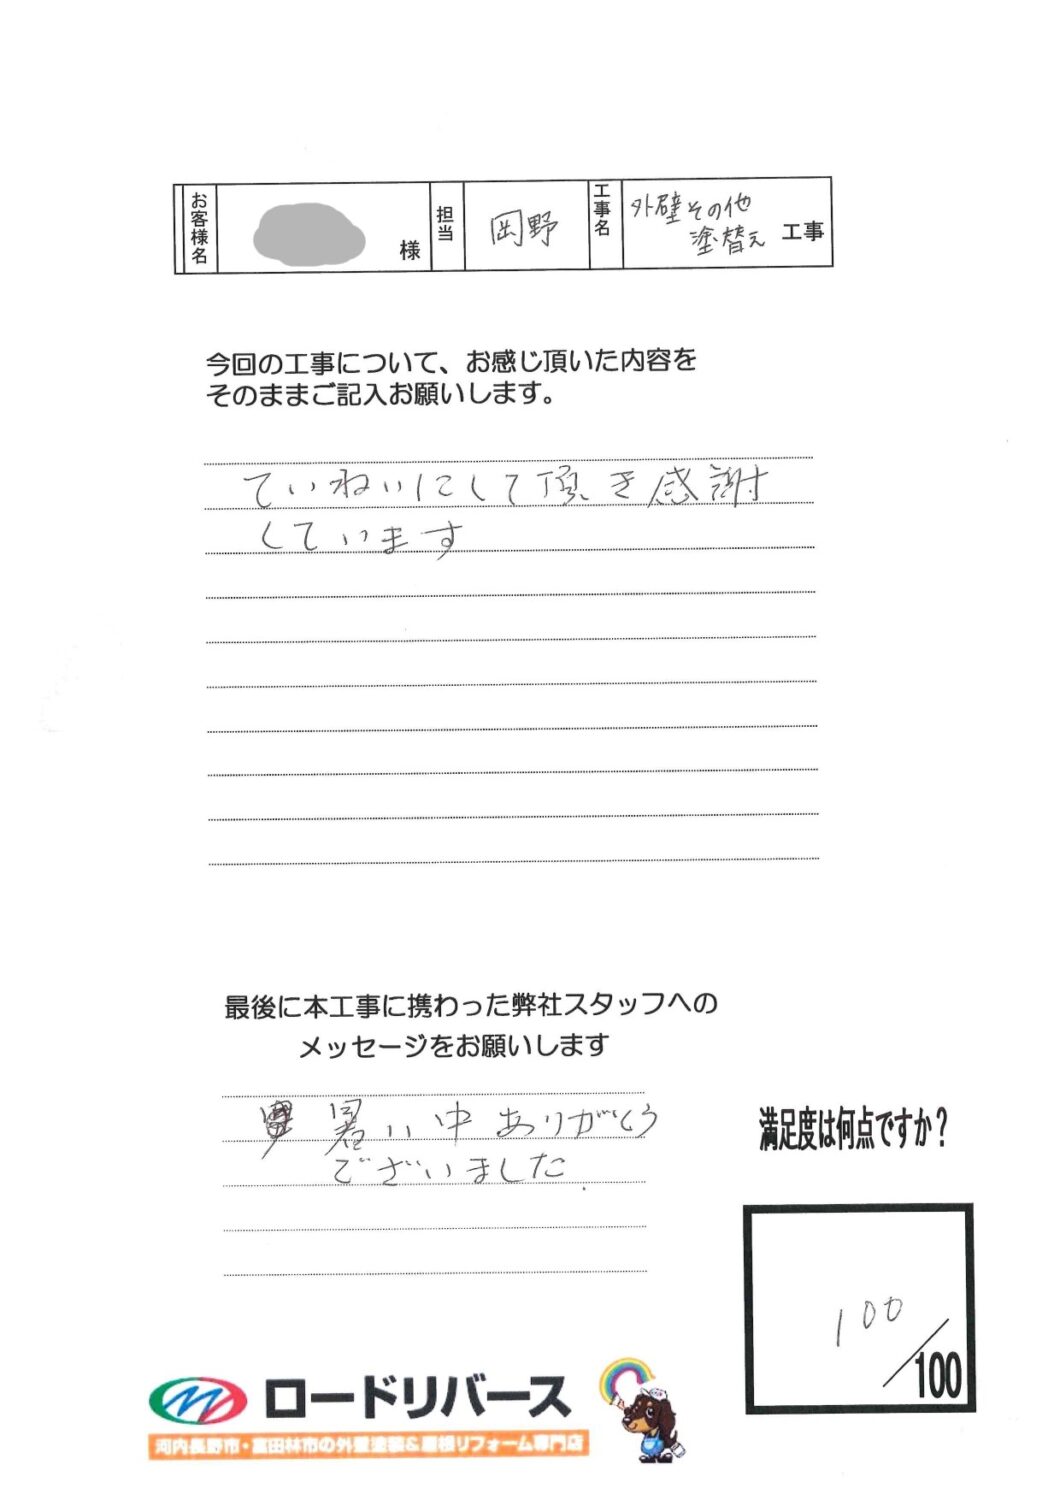 お客様名 様 担当 岡野 工事名 外壁その他 塗替え 工事
今回の工事について、お感じ頂いた内容を
そのままご記入お願いします。
ていねいにして頂き感謝
しています
最後に本工事に携わった弊社スタッフへの
メッセージをお願いします
暑い中ありがとう
ございました.
満足度は何点ですか？
100
/100
ロードリバース
河内長野市・富田林市の外壁塗装&屋根リフォーム専門店